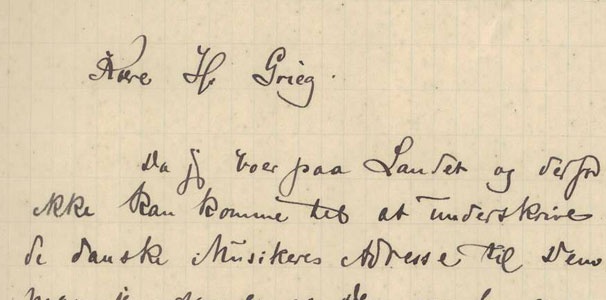 Kære Hr Grieg.
Da jeg boer paa Landet og derfor
ikke kan komme til at underskrive
de danske Musikeres Adresse til Dem